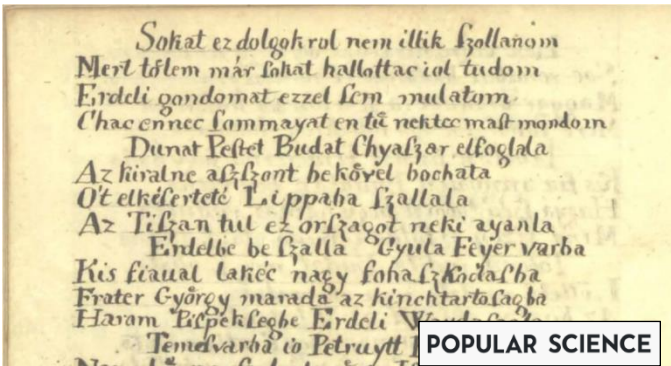 Sokat ez dolgokrol nem illik ſzollanom
Mert tőlem már ſokat hallottac iol tudom
Erdeli gondomat ezzel ſem mulatom
Chac ennec ſommayat en tű nektec maſt mondom
Dunat Peſtet Budat Chyaſzar elfoglala
Az kiralne aſzſzont bekővel bochata
Ȯt elkéſerteté Lippaba ſzallala
Az Tiſzan tul ez orſzagot neki ayanla
Erdelbe be ſzalla Gyula Feyer varba
Kis fiaual lakéc nagy fohaſzkodaſba
Frater György marada az kinchtartoſagba
Haram Piſpekſegbe Erdeli
Temeſvarba io Petruytt
POPULAR SCIENCE